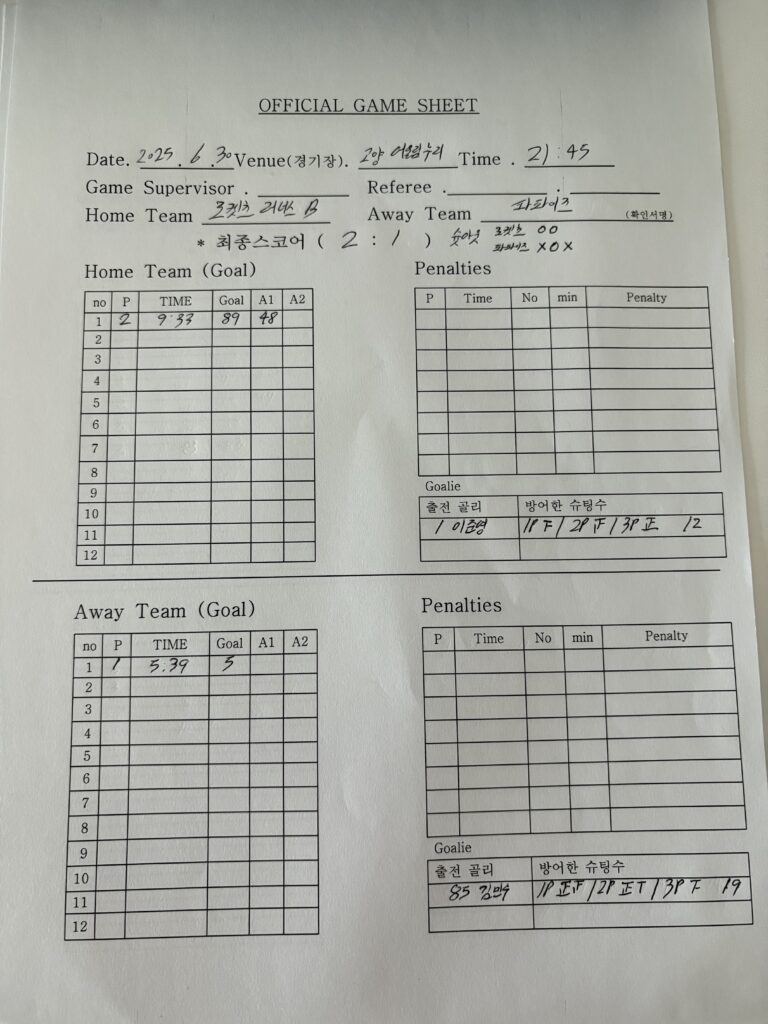 OFFICIAL GAME SHEET
Date. 2025 . 6 . 30 Venue(경기장). 고양 어울림누리 Time . 21:45
Game Supervisor . Referee . .
Home Team 로켓츠 러너스 B Away Team 파파이즈 (확인서명)
* 최종스코어 ( 2 : 1 ) 슛아웃 로켓츠 O O
파파이즈 X O X
Home Team (Goal) Penalties
no P TIME Goal A1 A2 P Time No min Penalty
1 2 9:33 89 48
2
3
4
5
6
7
8
9
10
11
12
Goalie
출전 골리 방어한 슈팅수
1 이준영 1P 下 / 2P 正 / 3P 正 12
Away Team (Goal) Penalties
no P TIME Goal A1 A2 P Time No min Penalty
1 1 5:39 5
2
3
4
5
6
7
8
9
10
11
12
Goalie
출전 골리 방어한 슈팅수
85 김민수 1P 正正 / 2P 正T / 3P 下 19